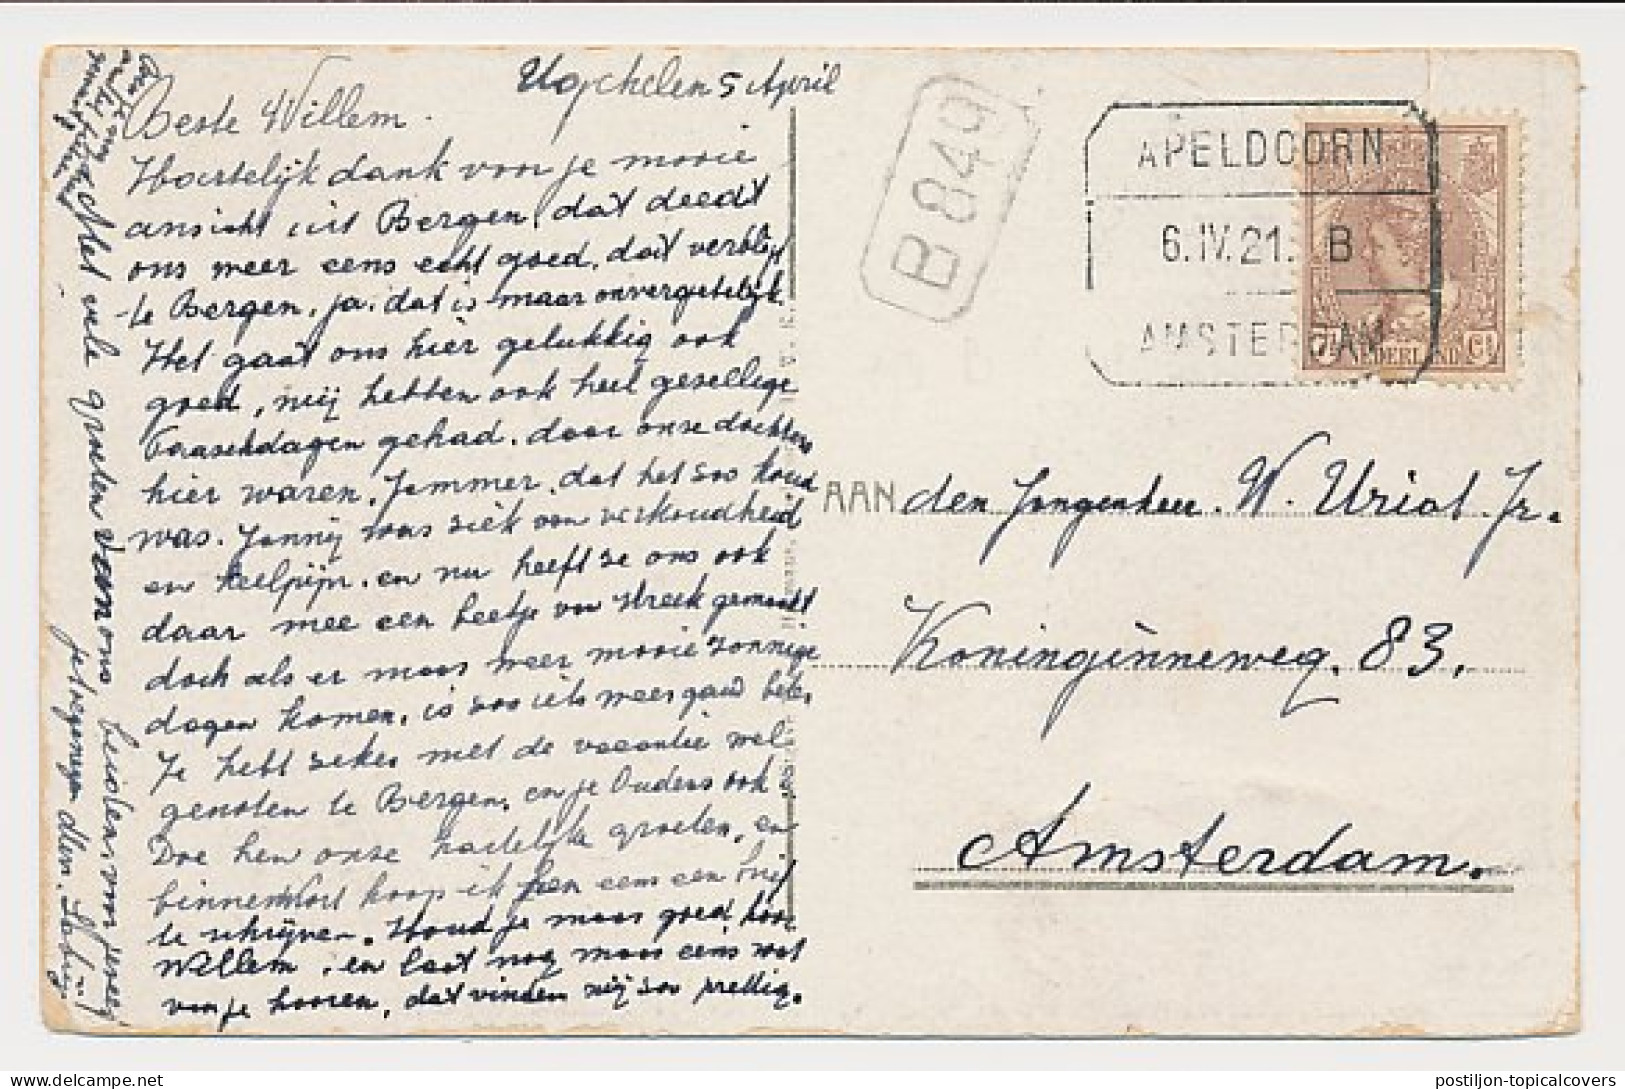 Ugchelen 5 April
Beste Willem.
Hartelijk dank voor je mooie
ansicht uit Bergen, dat deedt
ons meer eens echt goed, dat verblijf
te Bergen, ja. dat is maar onvergetelijk.
Het gaat ons hier gelukkig ook
goed, wij hebben ook heel gesellige
Paaschdagen gehad. daar onse dochters
hier waren. Jammer, dat het soo koud
was. Jonnij was siek van verkoudheid
en keelpijn. en nu heeft se ons ook
daar mee een beetje van streek gemaakt
doch als er maar weer mooie zonnige
dagen komen, is soo iets weer gauw beter.
Je hebt seker met de vacantie wel
genoten te Bergen, en je Ouders ook
Doe hen onse hartelijke groeten, en
binnenkort hoop ik hen eens een brief
te schrijven. Houd je maar goed, hoor
Willem, en laat nog maar eens wat
van je hooren, dat vinden wij soo prettig.
Met vele groeten van ons
B 849
APELDOORN
6.IV.21. B
AMSTERDAM
7½ NEDERLAND Ct
AAN den Jongenheer. W. Uriot. Jr.
Koninginneweg. 83.
Amsterdam.
postiljon-topicalcovers